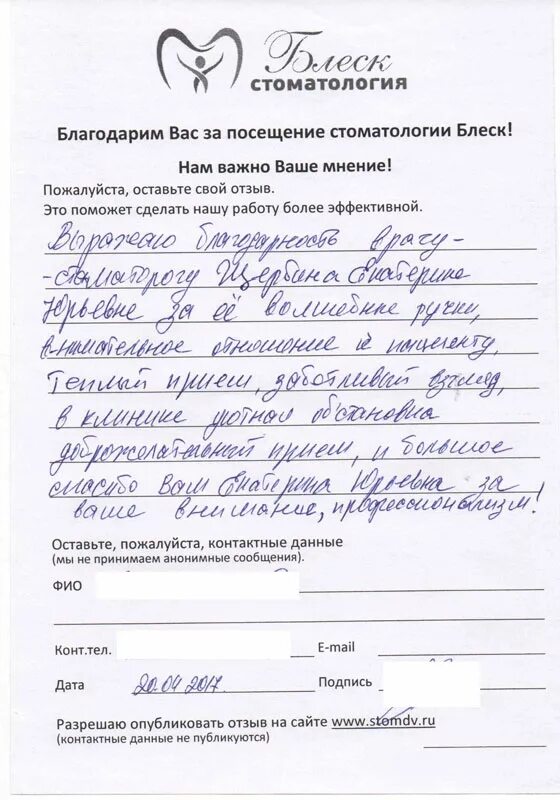 Блеск
стоматология
Благодарим Вас за посещение стоматологии Блеск!
Нам важно Ваше мнение!
Пожалуйста, оставьте свой отзыв.
Это поможет сделать нашу работу более эффективной.
Выражаю благодарность врачу-
-стоматорогу Щербина Екатерине
Юрьевне за её волшебные ручки,
внимательное отношение к пациенту,
Теплый прием, заботливый взгляд,
в клинике уютная обстановка
доброжелательный прием, и большое
спасибо Вам Екатерина Юрьевна за
ваше внимание, профессионализм!
Оставьте, пожалуйста, контактные данные
(мы не принимаем анонимные сообщения).
ФИО
Конт.тел. E-mail
Дата 20.04 2017. Подпись
Разрешаю опубликовать отзыв на сайте www.stomdv.ru
(контактные данные не публикуются)